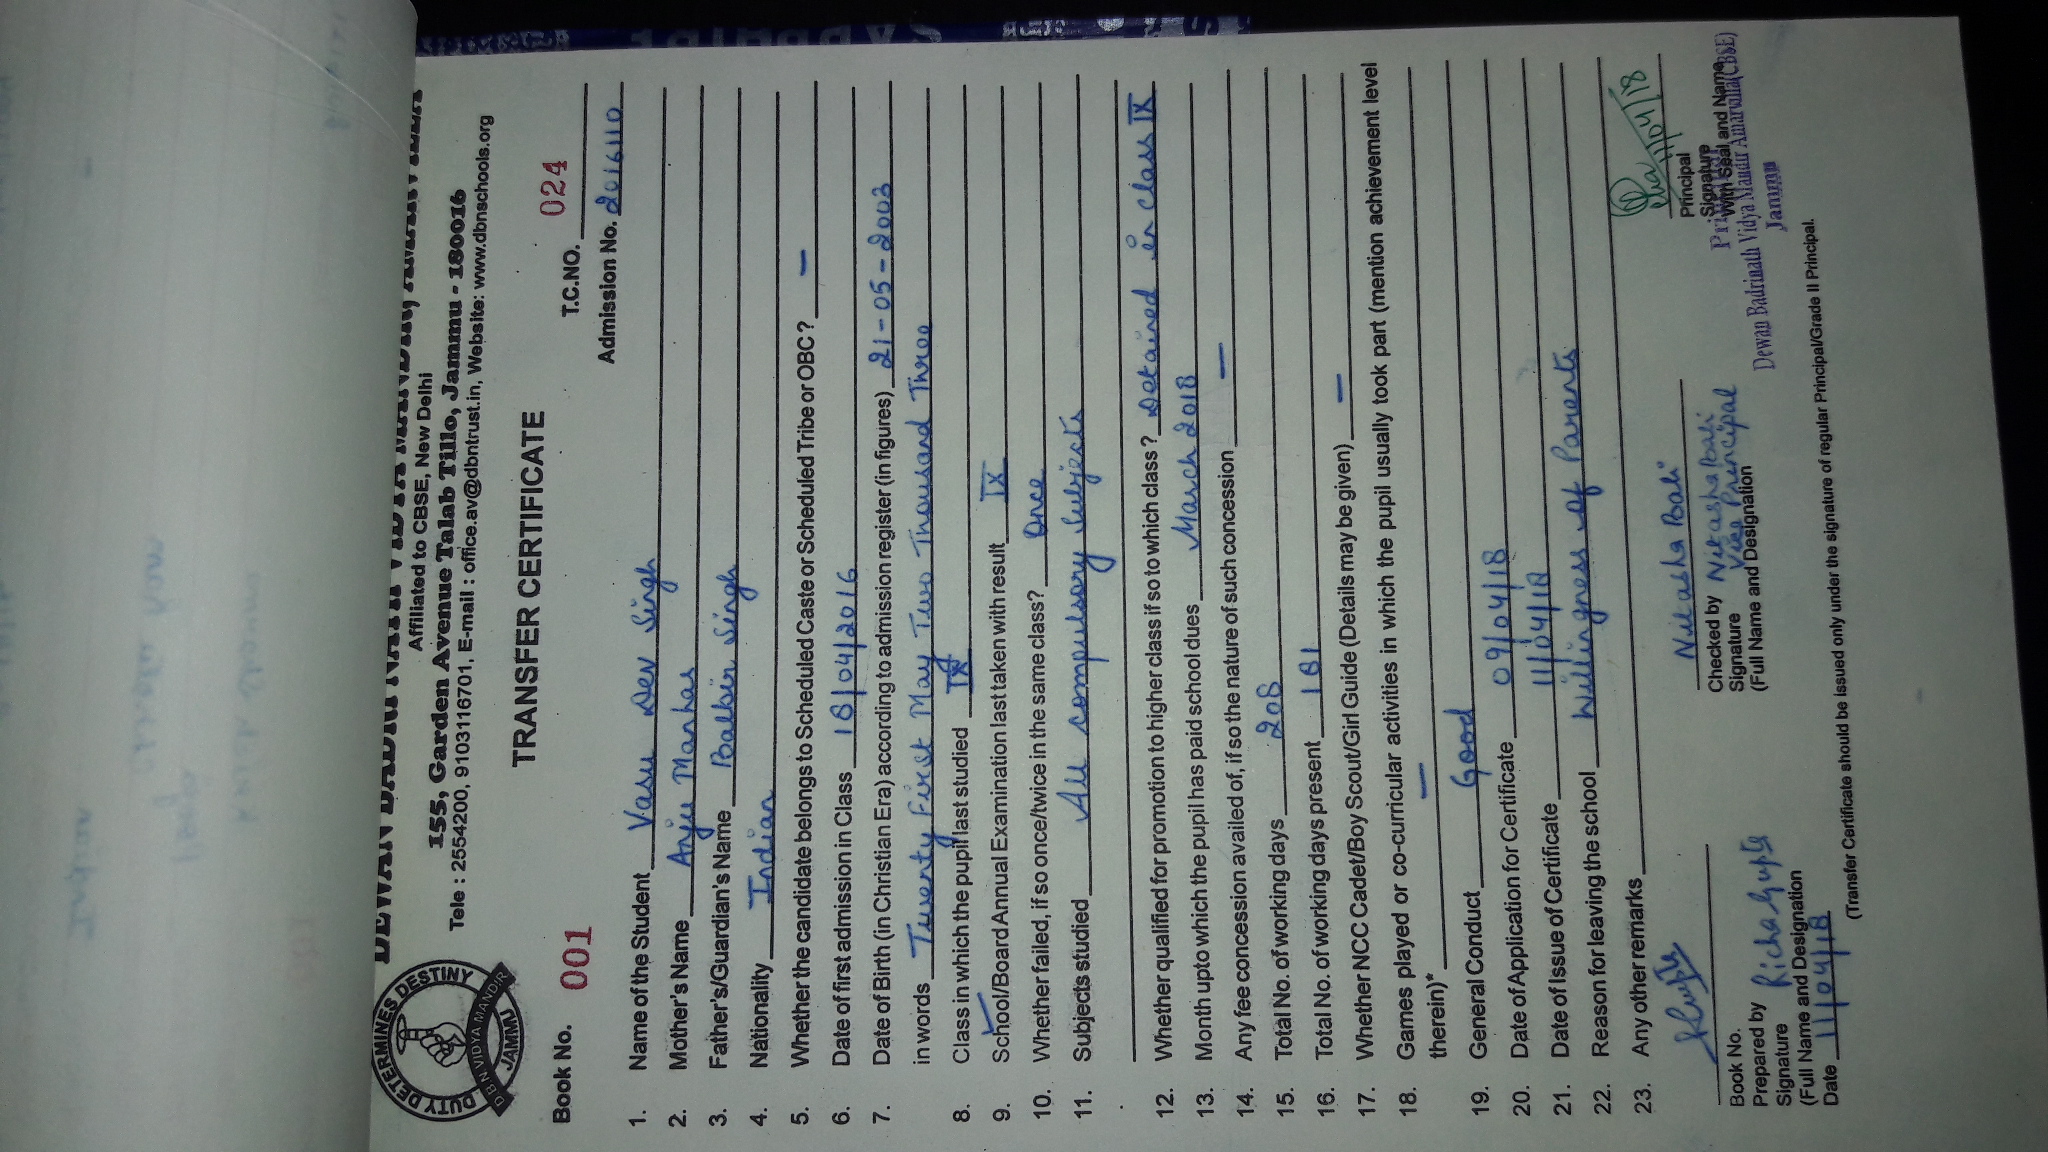 DEWAN BADRI NATH VIDYA MANDIR, AMARVILLA
Affiliated to CBSE, New Delhi
155, Garden Avenue Talab Tillo, Jammu - 180016
Tele : 2554200, 9103116701, E-mail : office.av@dbntrust.in, Website: www.dbnschools.org
DUTY DETERMINES DESTINY
D.B.N VIDYA MANDIR
JAMMU
TRANSFER CERTIFICATE
Book No. 001 T.C.NO. 024
Admission No. 2016110
1. Name of the Student Vasu Dev Singh
2. Mother's Name Anju Manhas
3. Father's/Guardian's Name Balbir Singh
4. Nationality Indian
5. Whether the candidate belongs to Scheduled Caste or Scheduled Tribe or OBC? —
6. Date of first admission in Class 18/04/2016
7. Date of Birth (in Christian Era) according to admission register (in figures) 21-05-2003
in words Twenty First May Two Thousand Three
8. Class in which the pupil last studied IX
9. School/Board Annual Examination last taken with result IX
10. Whether failed, if so once/twice in the same class? Once
11. Subjects studied All compulsory subjects
12. Whether qualified for promotion to higher class if so to which class ? Detained in class IX
13. Month upto which the pupil has paid school dues March 2018
14. Any fee concession availed of, if so the nature of such concession —
15. Total No. of working days 208
16. Total No. of working days present 181
17. Whether NCC Cadet/Boy Scout/Girl Guide (Details may be given) —
18. Games played or co-curricular activities in which the pupil usually took part (mention achievement level
therein)* —
19. General Conduct Good
20. Date of Application for Certificate 09/04/18
21. Date of Issue of Certificate 11/04/18
22. Reason for leaving the school Willingness of Parents
23. Any other remarks
Nitasha Bali
11/04/18
Book No.
Prepared by Richa Gupta
Signature
(Full Name and Designation
Date 11/04/18
Checked by Nitasha Bali
Signature Vice Principal
(Full Name and Designation
Principal
Signature
With Seal and Name
Dewan Badrinath Vidya Mandir Amarvilla (CBSE)
Jammu
(Transfer Certificate should be issued only under the signature of regular Principal/Grade II Principal.